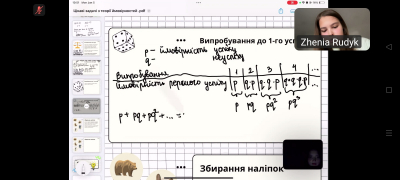 Цікаві задачі з теорії ймовірностей .pdf
Випробування до 1-го ус
Zhenia Rudyk
p - ймовірність успіху
q - неуспіху
випробування 1 2 3 4 ...
ймовірність першого успіху p q·p q·q·p q·q·q·p ...
p pq pq² pq³
p + pq + pq² + ... =
Збирання наліпок